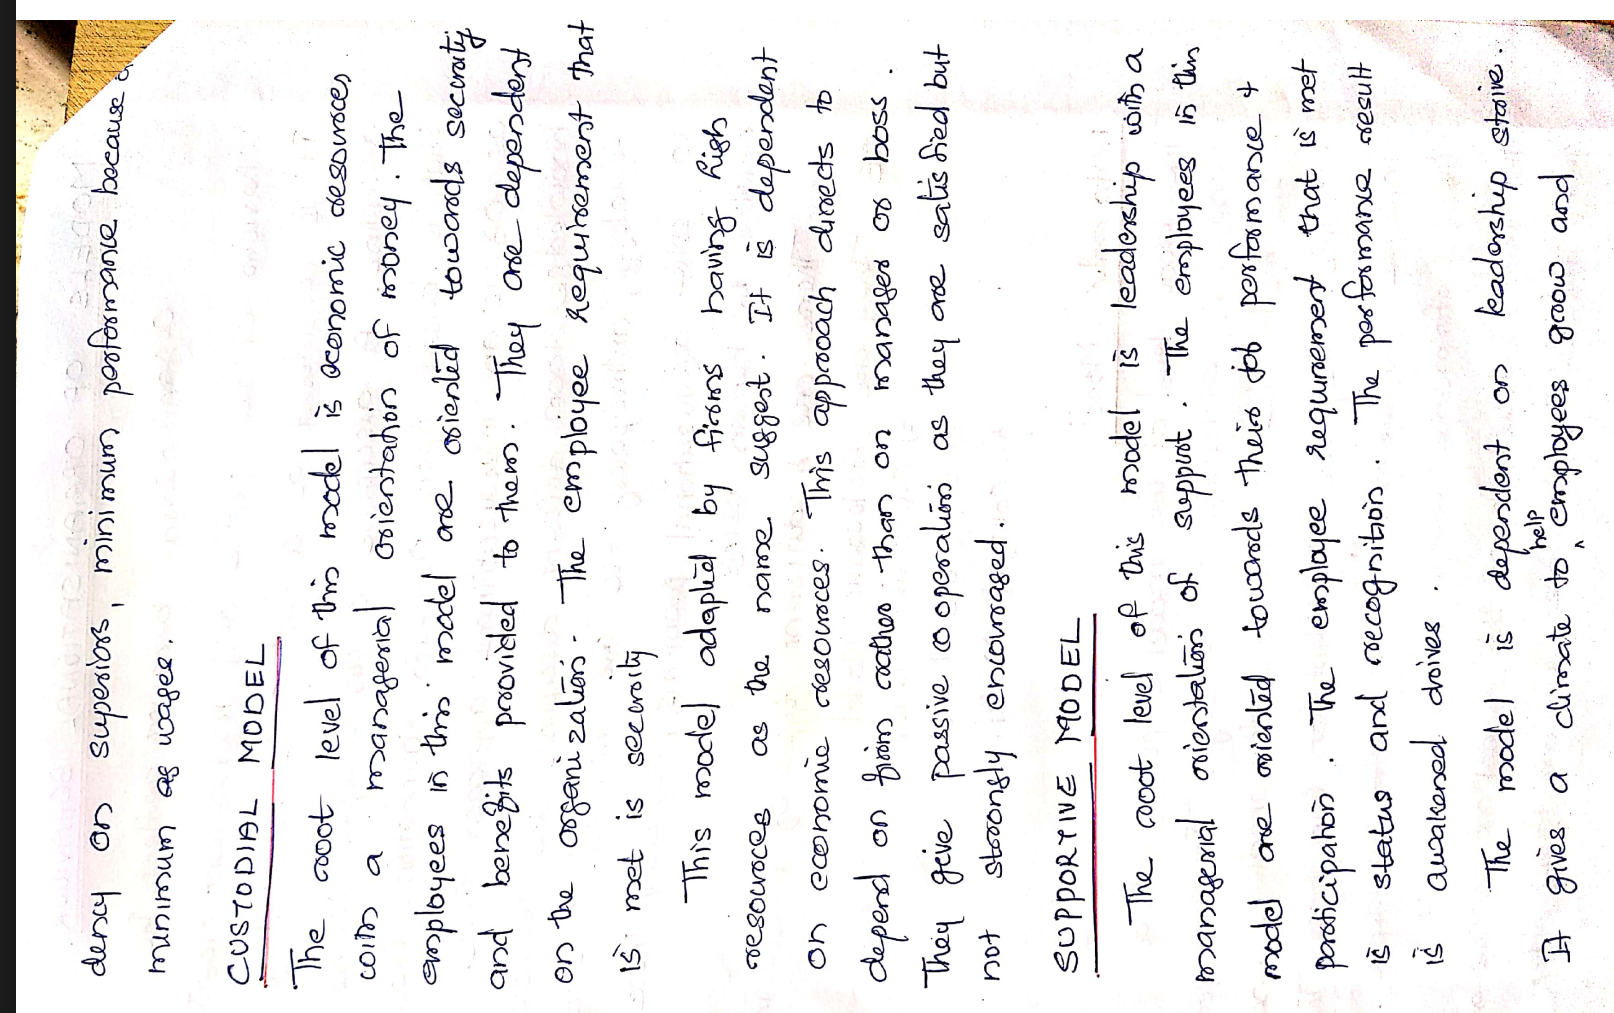 dency on superiors, minimum performance because
minimum as wages.
CUSTODIAL MODEL
The root level of this model is economic resources
with a managerial orientation of money. The
employees in this model are oriented towards security
and benefits provided to them. They are dependent
on the organization. The employee requirement that
is met is security
This model adapted by firms having high
resources as the name suggest. It is dependent
on economic resources. This approach directs to
depend on firm rather than on manager or boss.
They give passive cooperation as they are satisfied but
not strongly encouraged.
SUPPORTIVE MODEL
The root level of this model is leadership with a
managerial orientation of support. The employees in this
model are oriented towards their job performance +
participation. The employee requirement that is met
is status and recognition. The performance result
is awakened drives.
The model is dependent on leadership strive.
It gives a climate to help employees grow and